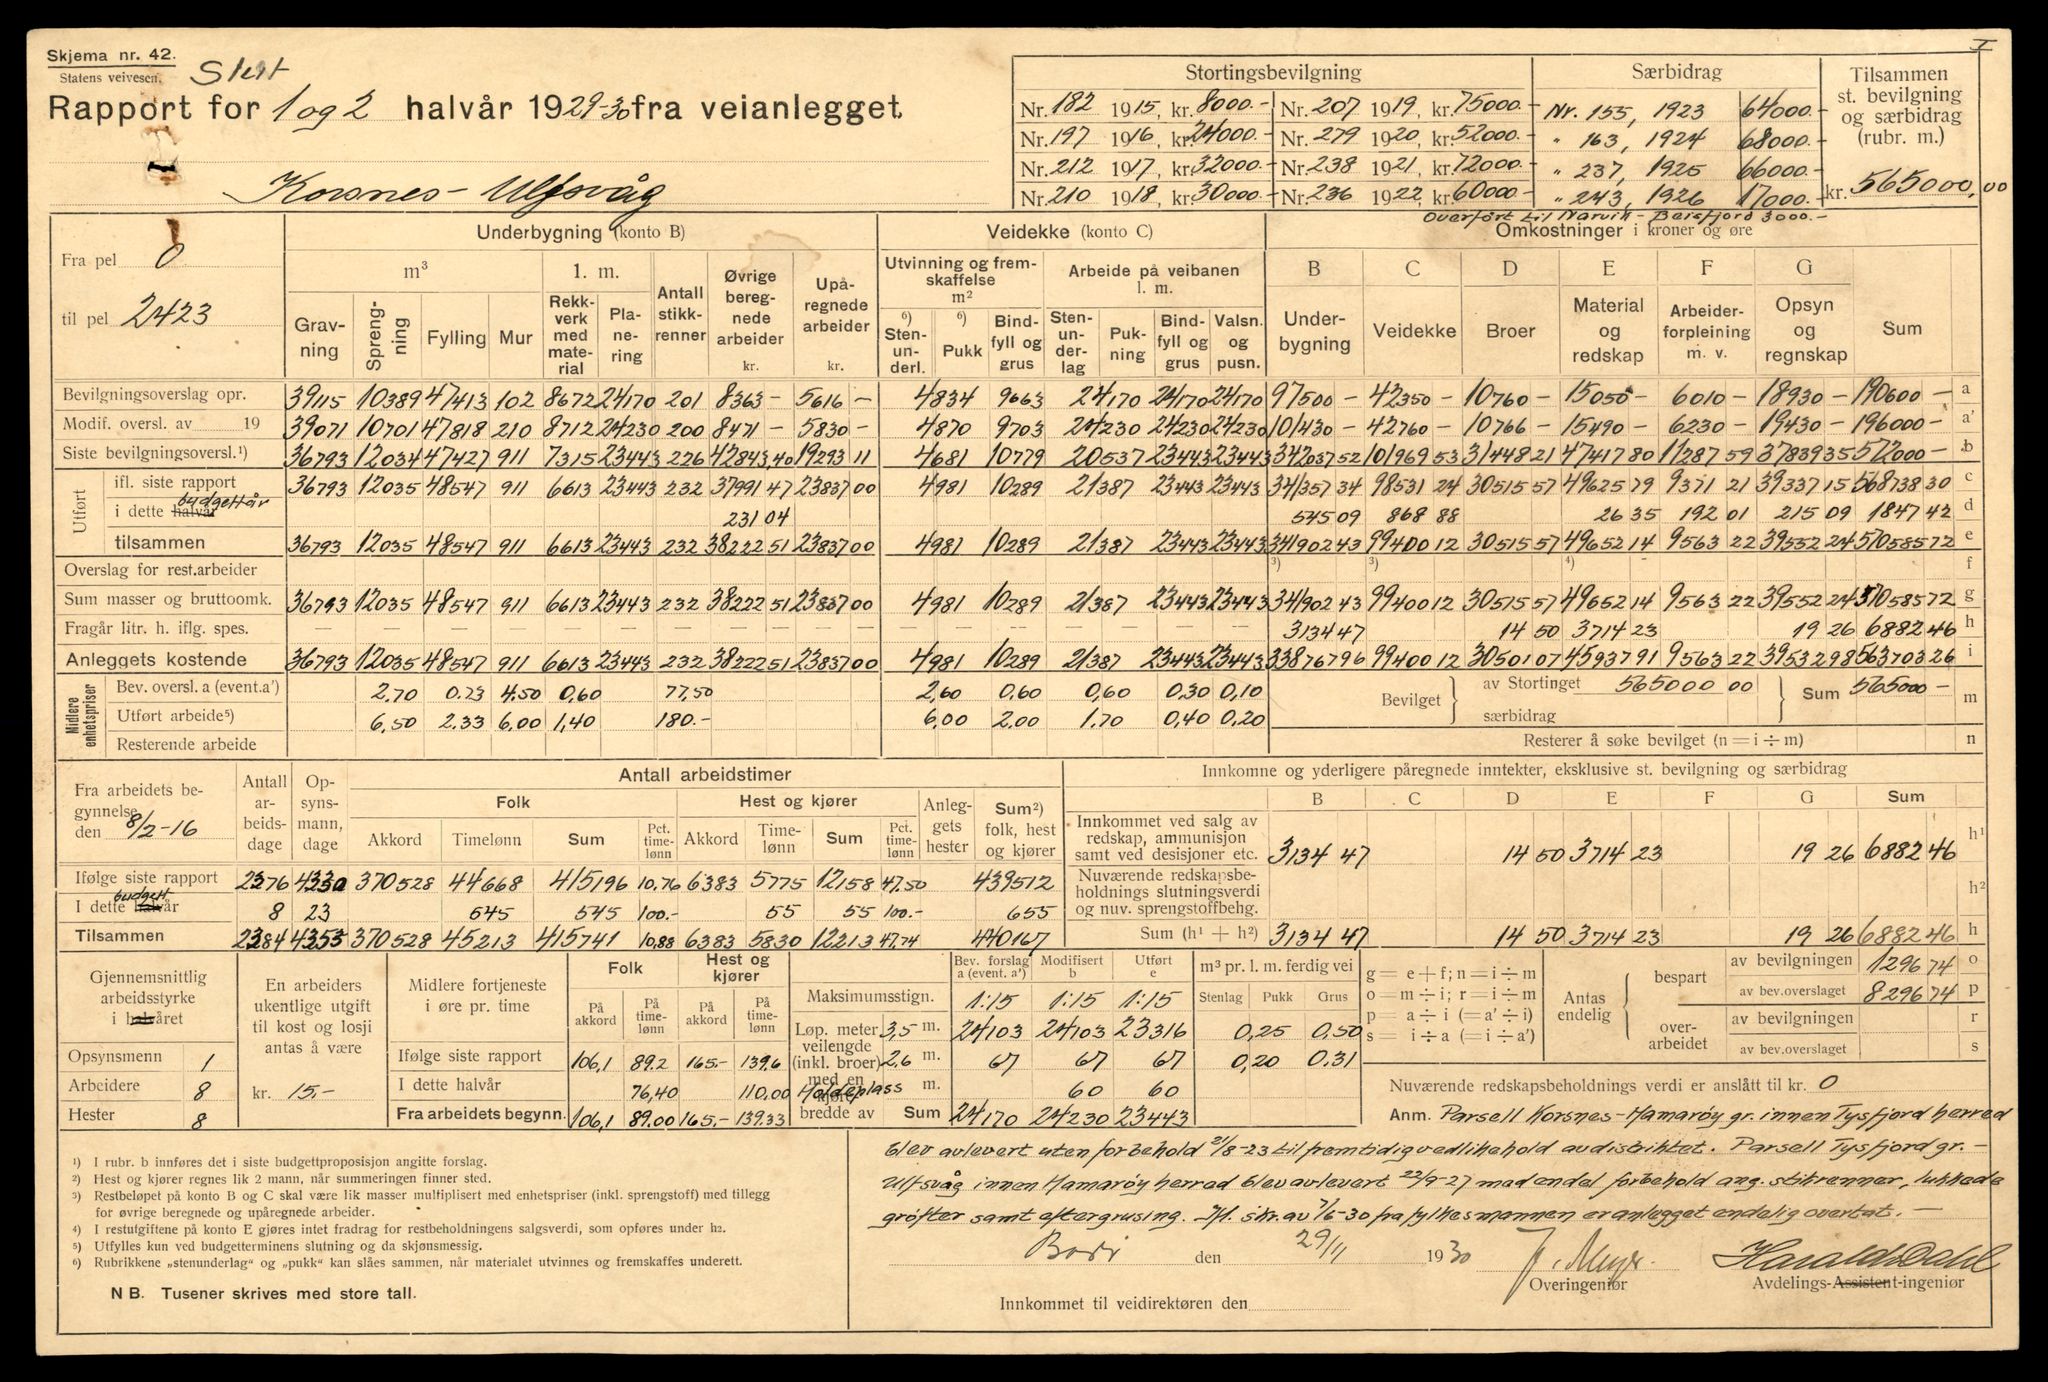 Skjema nr. 42.
Statens veivesen.
Rapport for 1 og 2 halvår 1929-30 fra veianlegget.
Korsnes - Ulfsvåg
Stortingsbevilgning
Særbidrag
Tilsammen st. bevilgning og særbidrag (rubr. m.)
kr. 565000,00
Nr. 182 1915, kr. 8000.- Nr. 207 1919, kr. 75000.- Nr. 155, 1923 64000.-
Nr. 197 1916, kr. 24000.- Nr. 279 1920, kr. 52000.- " 163, 1924 68000.-
Nr. 212 1917, kr. 32000.- Nr. 238 1921, kr. 72000.- " 237, 1925 66000.-
Nr. 210 1918, kr. 30000.- Nr. 236 1922, kr. 60000.- " 243, 1926 17000.-
Overført til Narvik - Beisfjord 3000.-
Fra pel 0
til pel 2423
Underbygning (konto B)
Veidekke (konto C)
Omkostninger i kroner og øre
m³ l. m. Antall stikkrenner Øvrige beregnede arbeider kr. Upåregnede arbeider kr.
Utvinning og fremskaffelse m² Arbeide på veibanen l. m.
B C D E F G
Gravning Sprengning Fylling Mur Rekkverk med material Planering
⁶) Stenunderl. ⁶) Pukk Bindfyll og grus Stenunderlag Pukning Bindfyll og grus Valsn. og pusn.
Underbygning Veidekke Broer Material og redskap Arbeiderforpleining m. v. Opsyn og regnskap Sum
Bevilgningsoverslag opr. 39115 10389 47413 102 8672 24170 201 8363 - 5616 - 4834 9663 24170 24170 24170 97500 - 42350 - 10760 - 15050 - 6010 - 18930 - 190600 - a
Modif. oversl. av 19 39071 10701 47818 210 8712 24230 200 8471 - 5830 - 4870 9703 24230 24230 24230 101430 - 42760 - 10766 - 15490 - 6230 - 19430 - 196000 - a'
Siste bevilgningsoversl.¹) 36793 12034 47427 911 7315 23443 226 42843,40 19293 11 4681 10779 20537 23443 23443 342037 52 101969 53 31448 21 47417 80 11287 59 37839 35 572000 - b
Utført
ifl. siste rapport 36793 12035 48547 911 6613 23443 232 37991 47 23837 00 4981 10289 21387 23443 23443 341357 34 98531 24 30515 57 49625 79 9371 21 39337 15 568738 30 c
budgettår
i dette halvår 231 04 545 09 868 88 26 35 192 01 215 09 1847 42 d
tilsammen 36793 12035 48547 911 6613 23443 232 38222 51 23837 00 4981 10289 21387 23443 23443 341902 43 99400 12 30515 57 49652 14 9563 22 39552 24 570585 72 e
Overslag for rest.arbeider ³) ³) f
Sum masser og bruttoomk. 36793 12035 48547 911 6613 23443 232 38222 51 23837 00 4981 10289 21387 23443 23443 341902 43 99400 12 30515 57 49652 14 9563 22 39552 24 570585 72 g
Fragår litr. h. iflg. spes. 3134 47 14 50 3714 23 19 26 6882 46 h
Anleggets kostende 36793 12035 48547 911 6613 23443 232 38222 51 23837 00 4981 10289 21387 23443 23443 338767 96 99400 12 30501 07 45937 91 9563 22 39532 98 563703 26 i
Midlere enhetspriser
Bev. oversl. a (event. a') 2.70 0.73 4.50 0,60 77,50 2,60 0,60 0,60 0,30 0,10
Utført arbeide⁵) 6,50 2.33 6,00 1,40 180.- 6,00 2,00 1.70 0,40 0,20
Resterende arbeide
Bevilget av Stortinget 565000 00 særbidrag Sum 565000 - m
Resterer å søke bevilget (n = i ÷ m) n
Fra arbeidets begynnelse den 8/2-16
Antall arbeidsdage Opsynsmann, dage
Antall arbeidstimer
Folk Hest og kjører Anleggets hester Sum²) folk, hest og kjører
Akkord Timelønn Sum Pct. timelønn Akkord Timelønn Sum Pct. timelønn
Ifølge siste rapport 2376 4330 370528 44668 415196 10.76 6383 5775 12158 47.50 439512
budgett
I dette halvår 8 23 545 545 100.- 55 55 100.- 655
Tilsammen 2384 4353 370528 45213 415741 10,88 6383 5830 12213 47,74 440167
Innkomne og yderligere påregnede inntekter, eksklusive st. bevilgning og særbidrag
B C D E F G Sum
Innkommet ved salg av redskap, ammunisjon samt ved desisjoner etc. 3134 47 14 50 3714 23 19 26 6882 46 h¹
Nuværende redskapsbeholdnings slutningsverdi og nuv. sprengstoffbehg. h²
Sum (h¹ + h²) 3134 47 14 50 3714 23 19 26 6882 46 h
Gjennemsnittlig arbeidsstyrke i halvåret
Opsynsmenn 1
Arbeidere 8
Hester 8
En arbeiders ukentlige utgift til kost og losji antas å være
kr. 15.-
Midlere fortjeneste i øre pr. time
Folk Hest og kjører
På akkord På timelønn På akkord På timelønn
Ifølge siste rapport 106,1 89.2 165.- 139.6
I dette halvår 76,40 110.00
Fra arbeidets begynn. 106,1 89.00 165.- 139.33
Bev. forslag a (event. a') Modifisert b Utført e
Maksimumsstign. 1:15 1:15 1:15
Løp. meter veilengde (inkl. broer) med en kjøre bredde av
3,5 m. 24103 24103 23316
2,6 m. 67 67 67
Holdeplass m. 60 60
Sum 24170 24230 23443
m³ pr. l. m. ferdig vei
Stenlag Pukk Grus
0,25 0,50
0,20 0.31
g = e + f; n = i ÷ m
o = m ÷ i; r = i ÷ m
p = a ÷ i (= a' ÷ i)
s = i ÷ a (= i ÷ a')
Antas endelig
bespart av bevilgningen 1296 74 o
av bev.overslaget 8296 74 p
overarbeidet av bevilgningen r
av bev.overslaget s
Nuværende redskapsbeholdnings verdi er anslått til kr. 0
Anm. Parsell Korsnes - Hamarøy gr. innen Tysfjord herred
blev avlevert uten forbehold 21/8-23 til fremtidig vedlikehold av distriktet. Parsell Tysfjord gr. -
Ulfsvåg innen Hamarøy herred blev avlevert 22/9-27 med endel forbehold ang. stikrenner, lukkede
grøfter samt eftergrusing. Ifl. skr. av 7/6-30 fra fylkesmannen er anlegget endelig overtat. -
Bodø den 29/11 1930
Overingeniør
Harald Dahl
Avdelings-Assistent-ingeniør
Innkommet til veidirektøren den
¹) I rubr. b innføres det i siste budgettproposisjon angitte forslag.
²) Hest og kjører regnes lik 2 mann, når summeringen finner sted.
³) Restbeløpet på konto B og C skal være lik masser multiplisert med enhetspriser (inkl. sprengstoff) med tillegg for øvrige beregnede og upåregnede arbeider.
⁴) I restutgiftene på konto E gjøres intet fradrag for restbeholdningens salgsverdi, som opføres under h².
⁵) Utfylles kun ved budgetterminens slutning og da skjønsmessig.
⁶) Rubrikkene „stenunderlag" og „pukk" kan slåes sammen, når materialet utvinnes og fremskaffes underett.
NB. Tusener skrives med store tall.